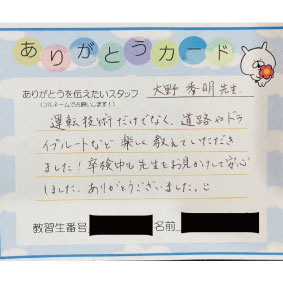 ありがとうカード
ありがとうを伝えたいスタッフ 大野 秀明先生.
(フルネームでお願いします!)
運転技術だけでなく、道路やドラ
イブルートなど 楽しく教えていただき
ました!卒検中も先生をお見かけして安心
しました。ありがとうございました。
教習生番号 名前